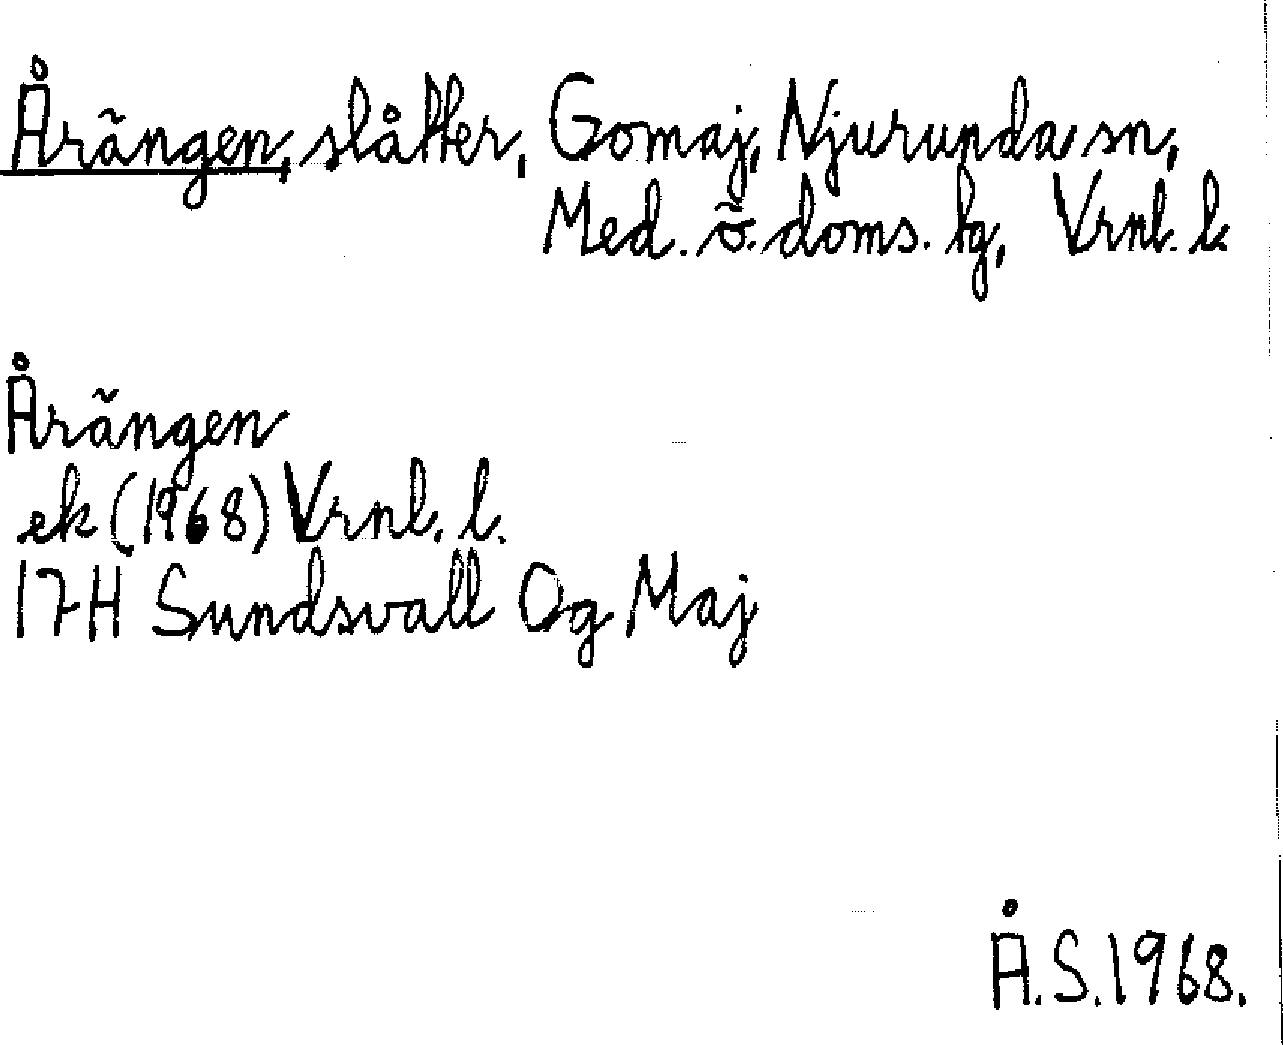 Årängen, slåtter, Gomaj, Njurunda sn,
Med. ö. doms. lg, Vrnl. l.
Årängen
ek (1968) Vrnl. l.
17H Sundsvall Og Maj
Å.S. 1968.